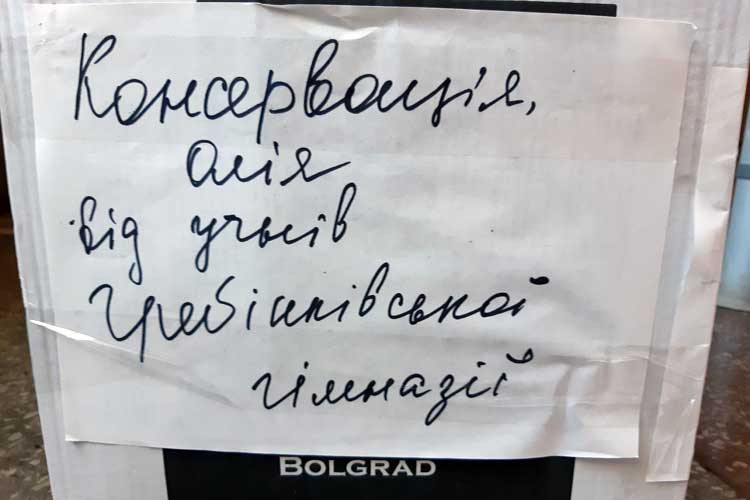 Консервація,
олія
від учнів
Гребінківської
гімназії
BOLGRAD